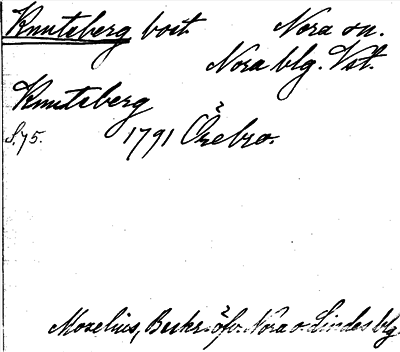 Knuteberg bost. Nora sn.
Nora blg. Vst.
Knuteberg
S.75. 1791 Örebro.
Moxelius, Beskr. öfv. Nora o. Lindes blg